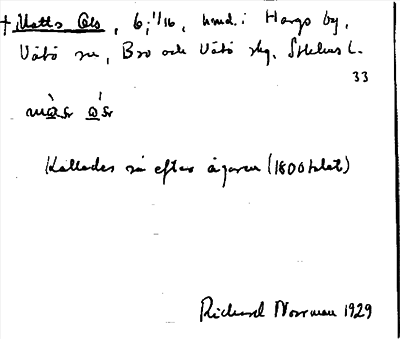 † Matts Ols, 6; 1/16, hmd. i Harg by,
Vätö sn, Bro och Vätö skg, Sthlms l.
33
Kallades så efter ägaren (1800talet)
Richard Norrman 1929